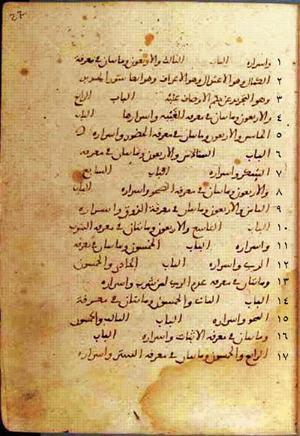 27
١ واسراره الباب الثالث والاربعون وماىتان في معرفة
٢ الكمال وهو الاعتدال وهو الاعراف وهو ايضا
٣ وهو عن حكم الاوصاف عليه الباب الرابع
٤ والاربعون وماىتان في معرفة الغيبة واسرارها الباب
٥ الخامس والاربعون وماىتان في معرفة الحضور واسراره
٦ الباب السادس والاربعون وماىتان في معرفة
٧ السكر واسراره الباب السابع
٨ والاربعون وماىتان في معرفة الصحو واسراره الباب
٩ الثامن والاربعون وماىتان في معرفة الذوق واسراره
١٠ الباب التاسع والاربعون وماىتان في معرفة الشرب
١١ واسراره الباب الخمسون وماىتان في معرفة
١٢ الري واسراره الباب الحادي والخمسون
١٣ وماىتان في معرفة عدم الري لمن شرب واسراره
١٤ الباب الثاني والخمسون وماىتان في معرفة
١٥ المحو واسراره الباب الثالث والخمسون
١٦ وماىتان في معرفة الاثبات واسراره الباب
١٧ الرابع والخمسون وماىتان في معرفة الستر واسراره